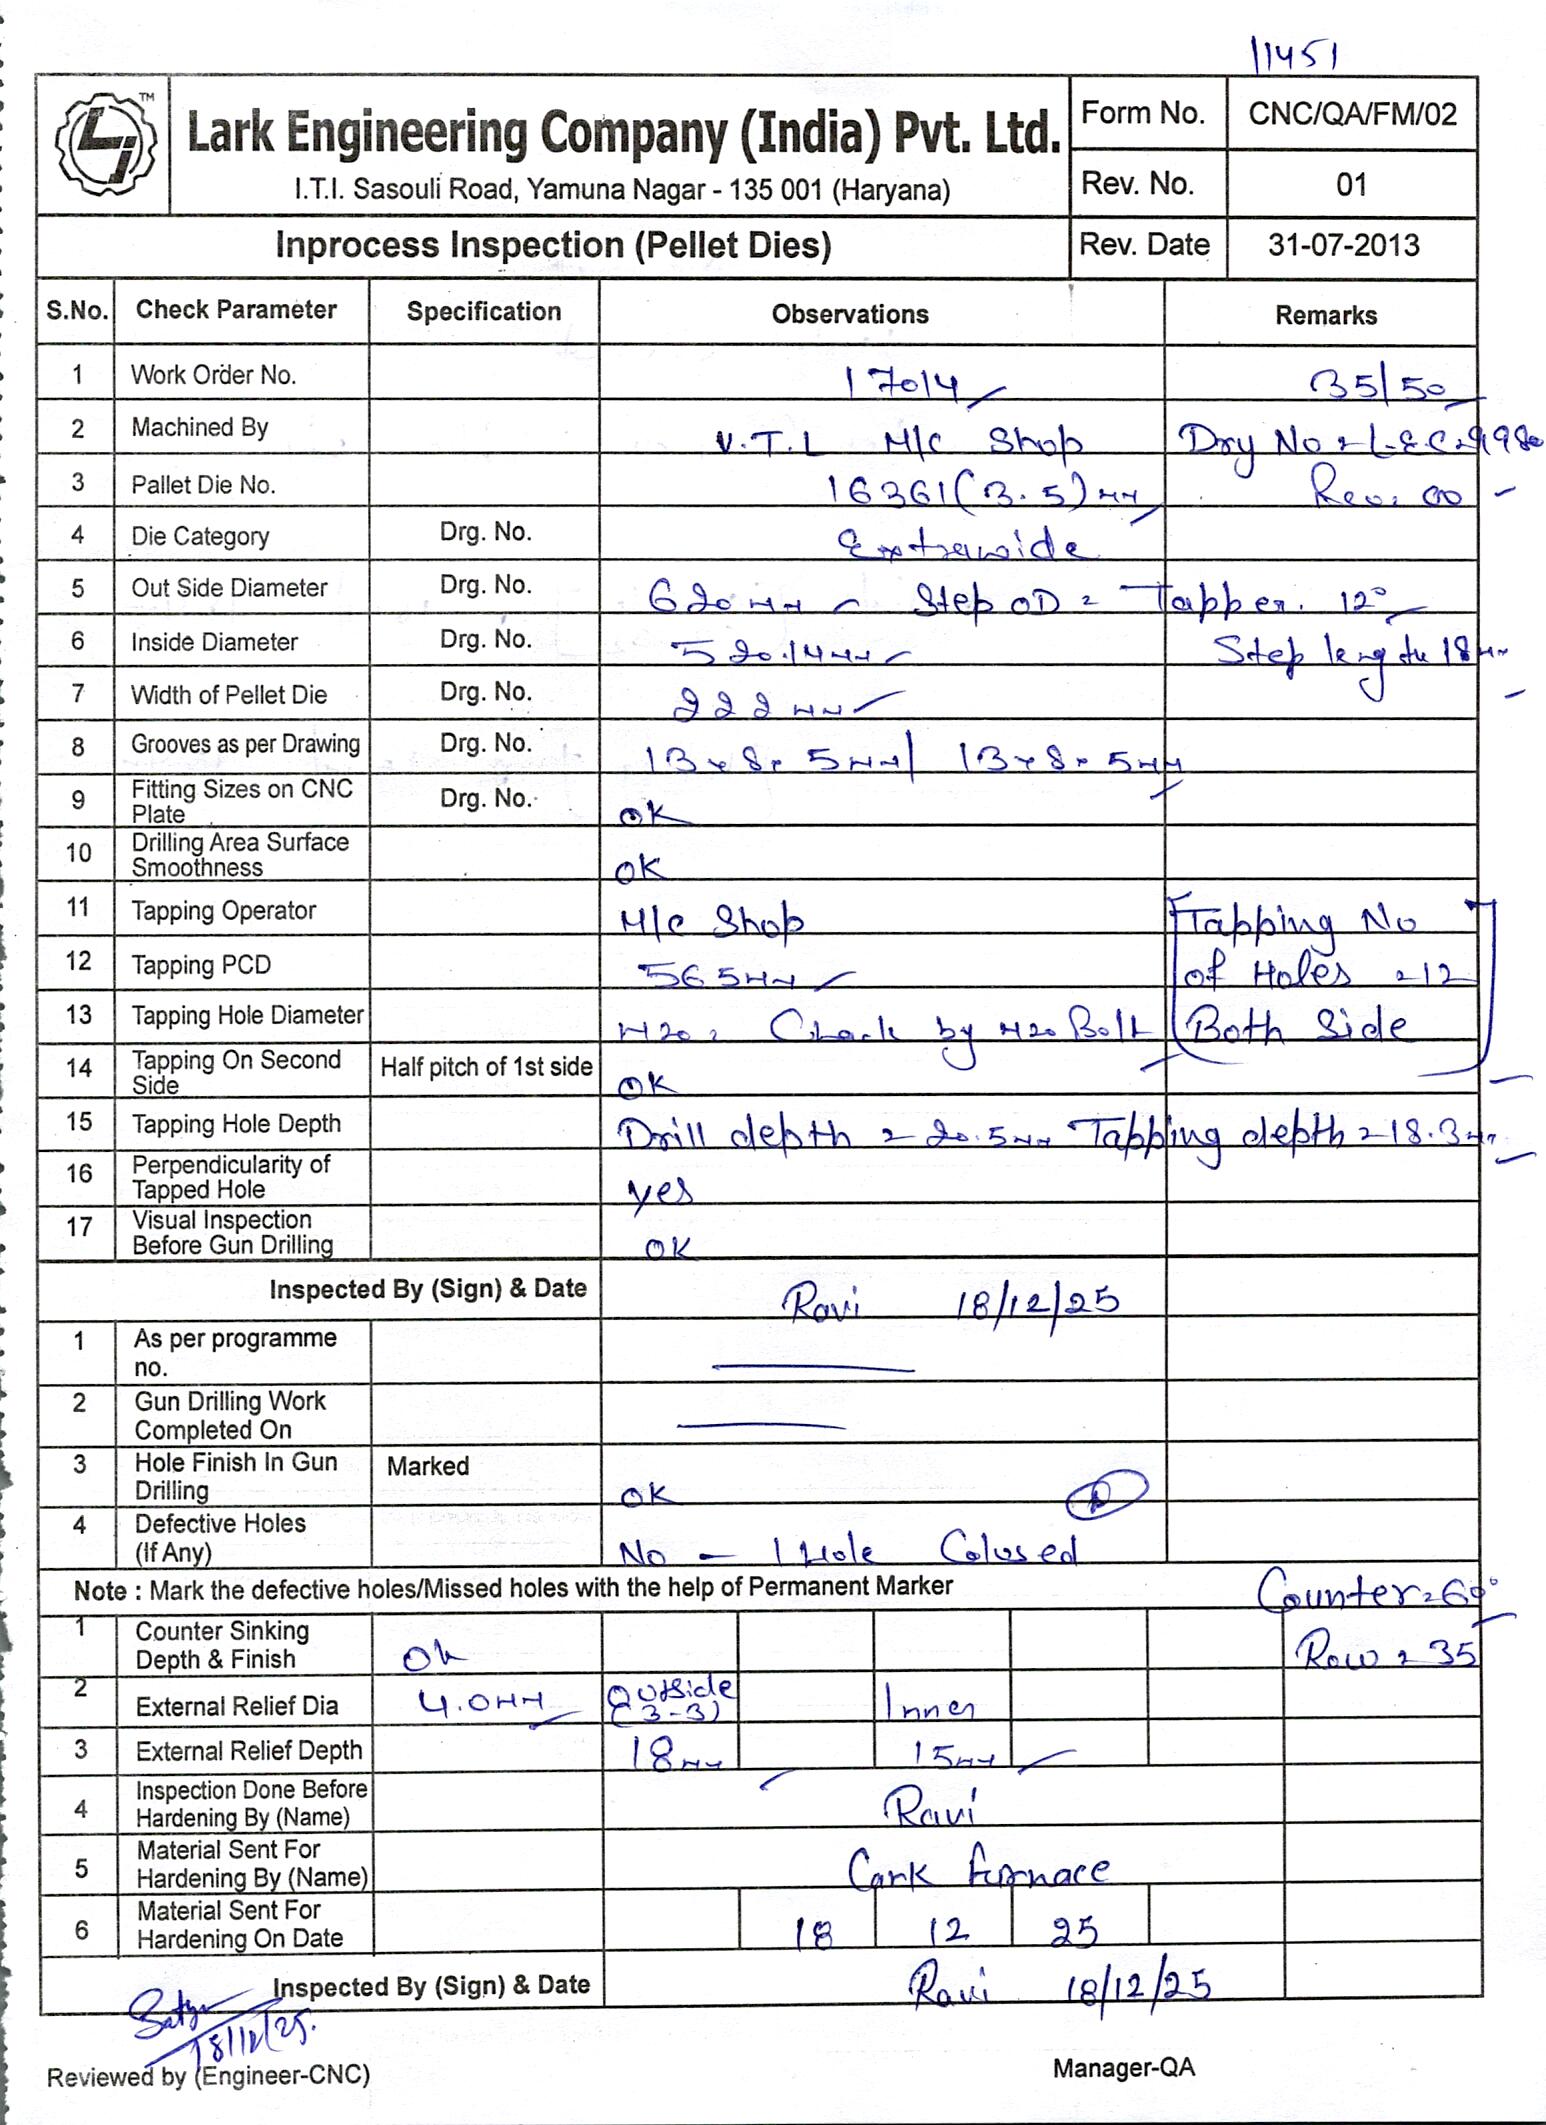 11451
Lark Engineering Company (India) Pvt. Ltd.
I.T.I. Sasouli Road, Yamuna Nagar - 135 001 (Haryana)
Form No. CNC/QA/FM/02
Rev. No. 01
Inprocess Inspection (Pellet Dies) Rev. Date 31-07-2013
S.No. Check Parameter Specification Observations Remarks
1 Work Order No. 17014 35/50
2 Machined By V.T.L M/C Shop
3 Pallet Die No. 16361(3.5)mm Rev: 00
4 Die Category Drg. No. Extrawide
5 Out Side Diameter Drg. No. 620mm Step OD = Tapper. 12°
6 Inside Diameter Drg. No. 520.14mm Step length 18mm
7 Width of Pellet Die Drg. No. 222mm
8 Grooves as per Drawing Drg. No. 13x8.5mm/ 13x8.5mm
9 Fitting Sizes on CNC Plate Drg. No. OK
10 Drilling Area Surface Smoothness OK
11 Tapping Operator M/C Shop Tapping No
12 Tapping PCD 565mm of Holes = 12
13 Tapping Hole Diameter M20 = Chack by M20 Bolt Both Side
14 Tapping On Second Side Half pitch of 1st side OK
15 Tapping Hole Depth Drill depth = 20.5mm Tapping depth = 18.3mm
16 Perpendicularity of Tapped Hole yes
17 Visual Inspection Before Gun Drilling OK
Inspected By (Sign) & Date Ravi 18/12/25
1 As per programme no.
2 Gun Drilling Work Completed On
3 Hole Finish In Gun Drilling Marked OK
4 Defective Holes (If Any) No - 1 Hole Colused
Note : Mark the defective holes/Missed holes with the help of Permanent Marker Counter = 60°
1 Counter Sinking Depth & Finish Ok Row = 35
2 External Relief Dia 4.0mm Outside (3-3) Inner
3 External Relief Depth 18mm 15mm
4 Inspection Done Before Hardening By (Name) Ravi
5 Material Sent For Hardening By (Name) Lark furnace
6 Material Sent For Hardening On Date 18 12 25
Inspected By (Sign) & Date Ravi 18/12/25
18/12/25.
Reviewed by (Engineer-CNC) Manager-QA